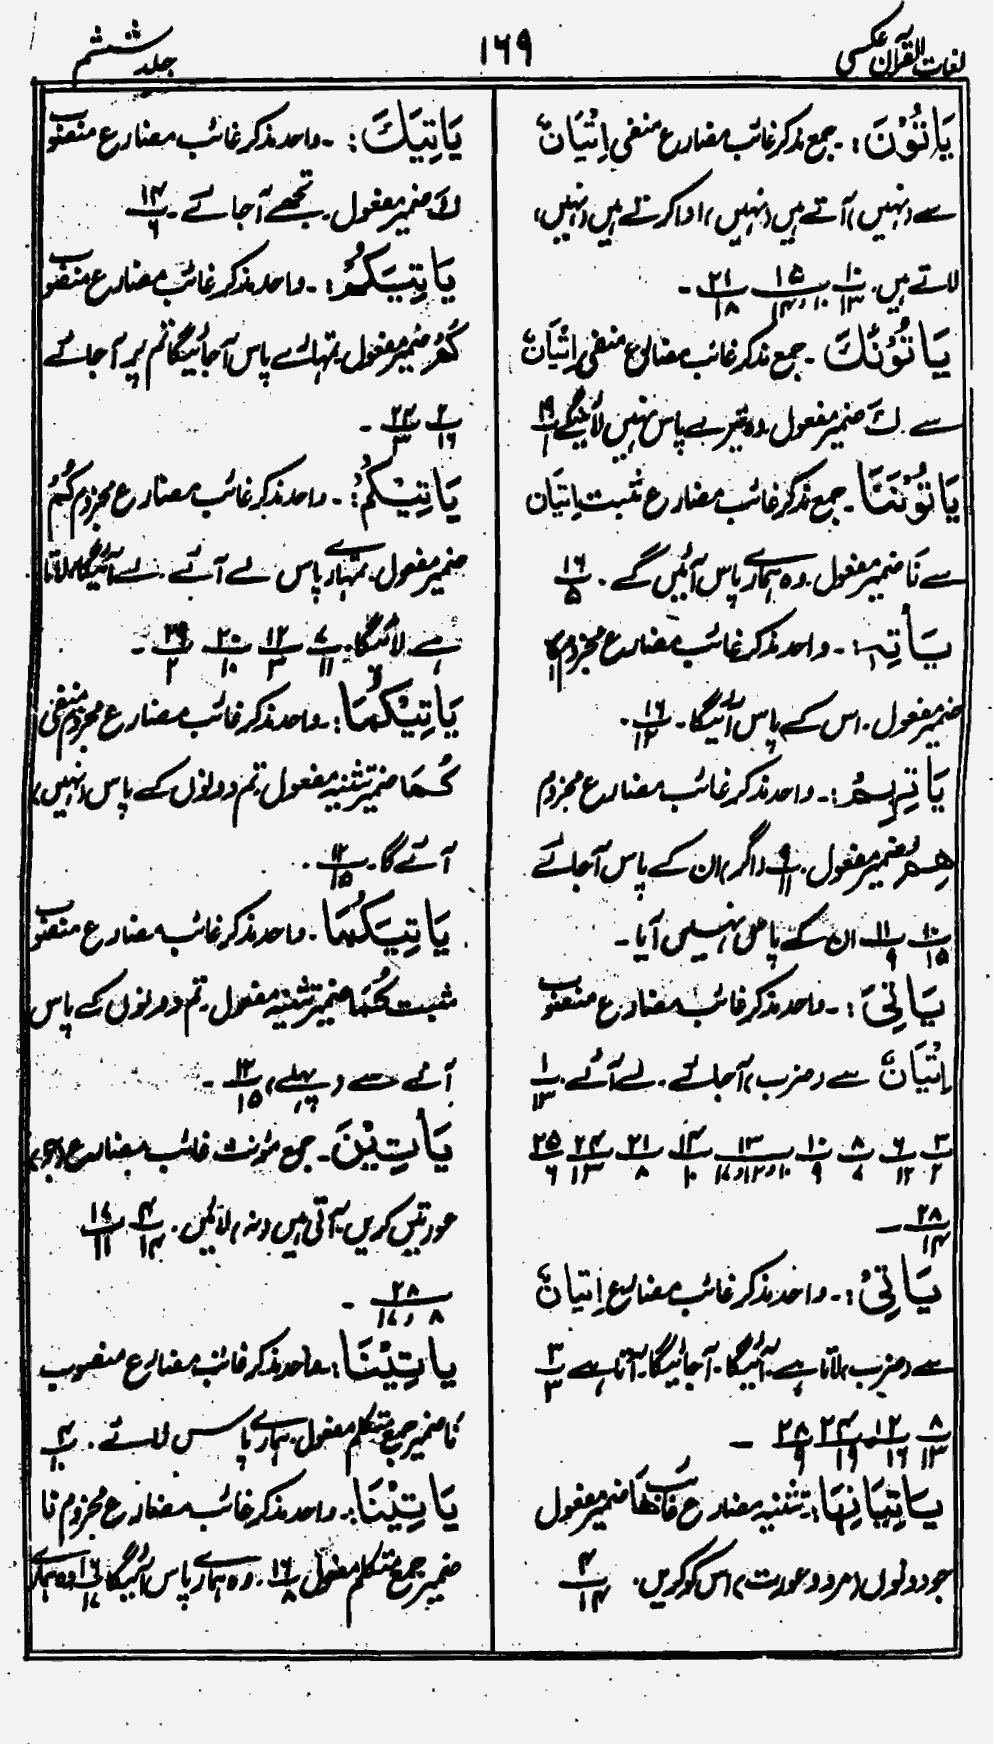 لغات القرآن عکسی
۱۶۹
جلد ششم
يَاْتُوْنَ:۔ جمع مذکر غائب مضارع منفی اِتْیَانٌ
سے (نہیں) آتے ہیں (نہیں) ادا کرتے ہیں (نہیں)
لاتے ہیں۔ ۱۰/۱۳ ۱۵/۱۰،۱۴ ۲۱/۱۸ ۔
يَاْتُوْنَكَ ۔ جمع مذکر غائب مضارع منفی اِتْیَانٌ
سے۔ كَ ضمیر مفعول۔ وہ تیرے پاس نہیں لائینگے ۱۹/۱
يَاْتُوْنَنَا ۔ جمع مذکر غائب مضارع مثبت اِتْیَان
سے نَا ضمیر مفعول۔ وہ ہمارے پاس آئیں گے۔ ۱۶/۵
يَأْتِهٖ:۔ واحد مذکر غائب مضارع مجزوم
ضمیر مفعول۔ اس کے پاس آئیگا۔ ۱۶/۱۲ ۔
يَاْتِهِمْ:۔ واحد مذکر غائب مضارع مجزوم
هِمْ ضمیر مفعول۔ ۹/۱۱ (اگر) ان کے پاس آجائے
۱۰/۱۵ ۱۱/۹ ان کے پاس نہیں آیا۔
يَاْتِیَ:۔ واحد مذکر غائب مضارع منصوب
اِتْیَانٌ سے (ضرب) آجائے۔ لے آئے۔ ۱/۱۳
۳/۲ ۶/۱۲ ۸/۷ ۱۰/۹ ۱۳/۱۰،۱۲،۱۷ ۱۴/۱۰ ۲۱/۸ ۲۴/۱۳ ۲۵/۶
۲۸/۱۴ ۔
يَاْتِیْ:۔ واحد مذکر غائب مضارع اِتیانٌ
سے (ضرب) لاتا ہے۔ آئیگا۔ آجائیگا۔ آتا ہے ۳/۳
۸/۱۳ ۱۲/۱۶ ۲۴/۱۹ ۲۸/۹ ۔
يَاْتِيَانِهَا: تثنیہ مضارع غائب هَا ضمیر مفعول
جو دونوں (مرد و عورت) اس کو کریں۔ ۴/۱۴
يَاْتِيَكَ:۔ واحد مذکر غائب مضارع منصوب
كَ ضمیر مفعول۔ تجھے آجائے۔ ۱۴/۶
يَاْتِيَكُمْ:۔ واحد مذکر غائب مضارع منصوب
كُمْ ضمیر مفعول۔ تمہارے پاس آجائیگا تم پر آجائے
۲/۱۶ ۲۴/۳ ۔
يَاْتِيْكُمْ:۔ واحد مذکر غائب مضارع مجزوم كُمْ
ضمیر مفعول۔ تمہارے پاس لے آئے۔ لے آئیگا۔ لاتا
ہے۔ لائیگا۔ ۷/۱۱ ۱۲/۳ ۲۰/۱۰ ۲۹/۲ ۔
يَاْتِيْكُمَا: واحد مذکر غائب مضارع مجزوم منفی
كُمَا ضمیر تثنیہ مفعول۔ تم دونوں کے پاس (نہیں)
آئے گا۔ ۱۲/۱۵ ۔
يَاْتِيَكُمَا۔ واحد مذکر غائب مضارع منصوب
مثبت كُمَا ضمیر تثنیہ مفعول۔ تم دونوں کے پاس
آئے سے (پہلے) ۱۲/۱۵ ۔
يَأْتِيْنَ۔ جمع مؤنث غائب مضارع (جو)
عورتیں کریں۔ آتی ہیں (نہ) لائیں۔ ۴/۱۴ ۱۷/۱۱
۲۸/۸،۱۷ ۔
يَاتِيْنَا: واحد مذکر غائب مضارع منصوب
نَا ضمیر جمع متکلم مفعول۔ ہمارے پاس لائے۔ ۴/۱۰
يَاْتِيْنَا: واحد مذکر غائب مضارع مجزوم نا
ضمیر جمع متکلم مفعول ۱۶/۸۔ وہ ہمارے پاس آئیگا ۱۶/۱۷ وہ ہمارے